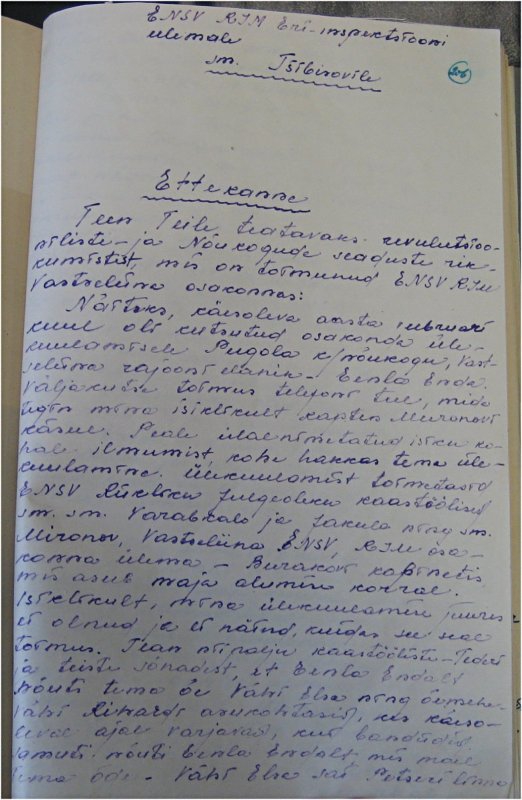 ENSV RJM Eri-inspektsiooni
ülemale
sm. Tšibirovile
206
Ettekanne
Teen Teile teatavaks revulutsioo-
niliste- ja Nõukogude seaduste rik-
kumistist, mis on toimunud ENSV RJM
Vastseliina osakonnas:
Näiteks, käesoleva aasta
kuul oli kutsutud osakonda üle-
kuulamisele Pugola k/nõukogu, Vast-
seliina rajooni elanik - Eenla Enda.
Väljakutse toimus telefoni teel, mida
tegin mina isiklikult kapten Mironovi
käsul. Peale ülalnimetatud isiku ko-
hale ilmumist, kohe hakkas tema üle-
kuulamine. Ülekuulamist toimetasid
ENSV Riikliku Julgeoleku kaastöölised
sm. sm. Varabkalo ja Jakula ning sm.
Mironov, Vastseliina ENSV, RJM osa-
konna ülema - Burakovi kabinetis
mis asub maja alumise korral.
Isiklikult, mina ülekuulamise juures
ei olnud ja ei näinud, kuidas see seal
toimus. Tean niipalju kaastööliste-
ja teiste sõnadest, et Eenla Endalt
nõuti tema õe Vähi Elsa ning õemehe-
Vähi Rihardi asukohtasid, kes käeso-
leval ajal varjavad, kui bandiidid,
samuti nõuti Eenla Endalt, mis moel
tema õde - Vähi Elsa sai Petseri linna